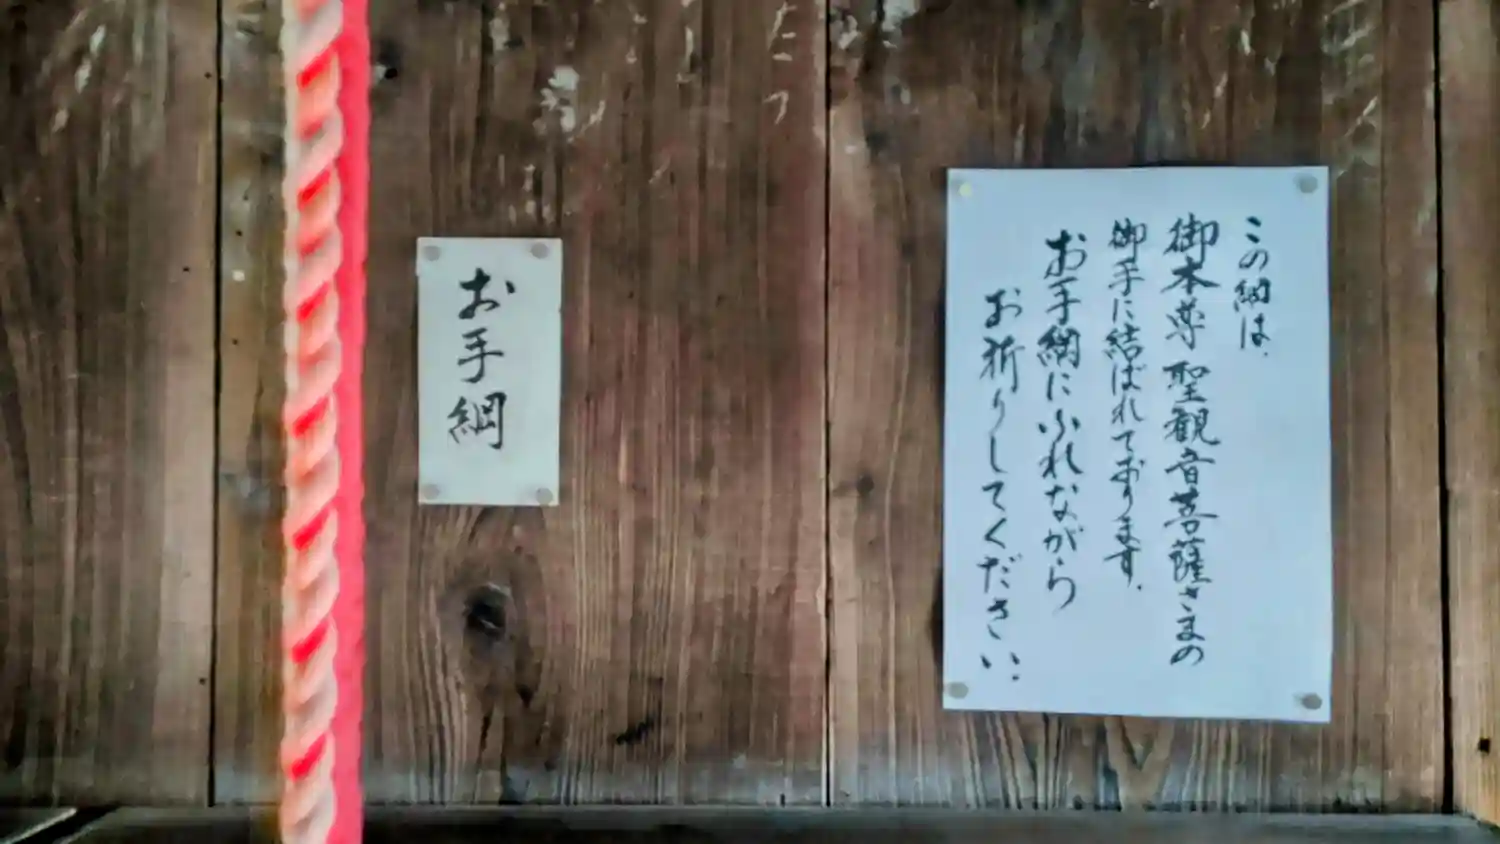 この綱は、
御本尊 聖観音菩薩さまの
御手に結ばれております。
お手綱にふれながら
お祈りしてください。
お手綱